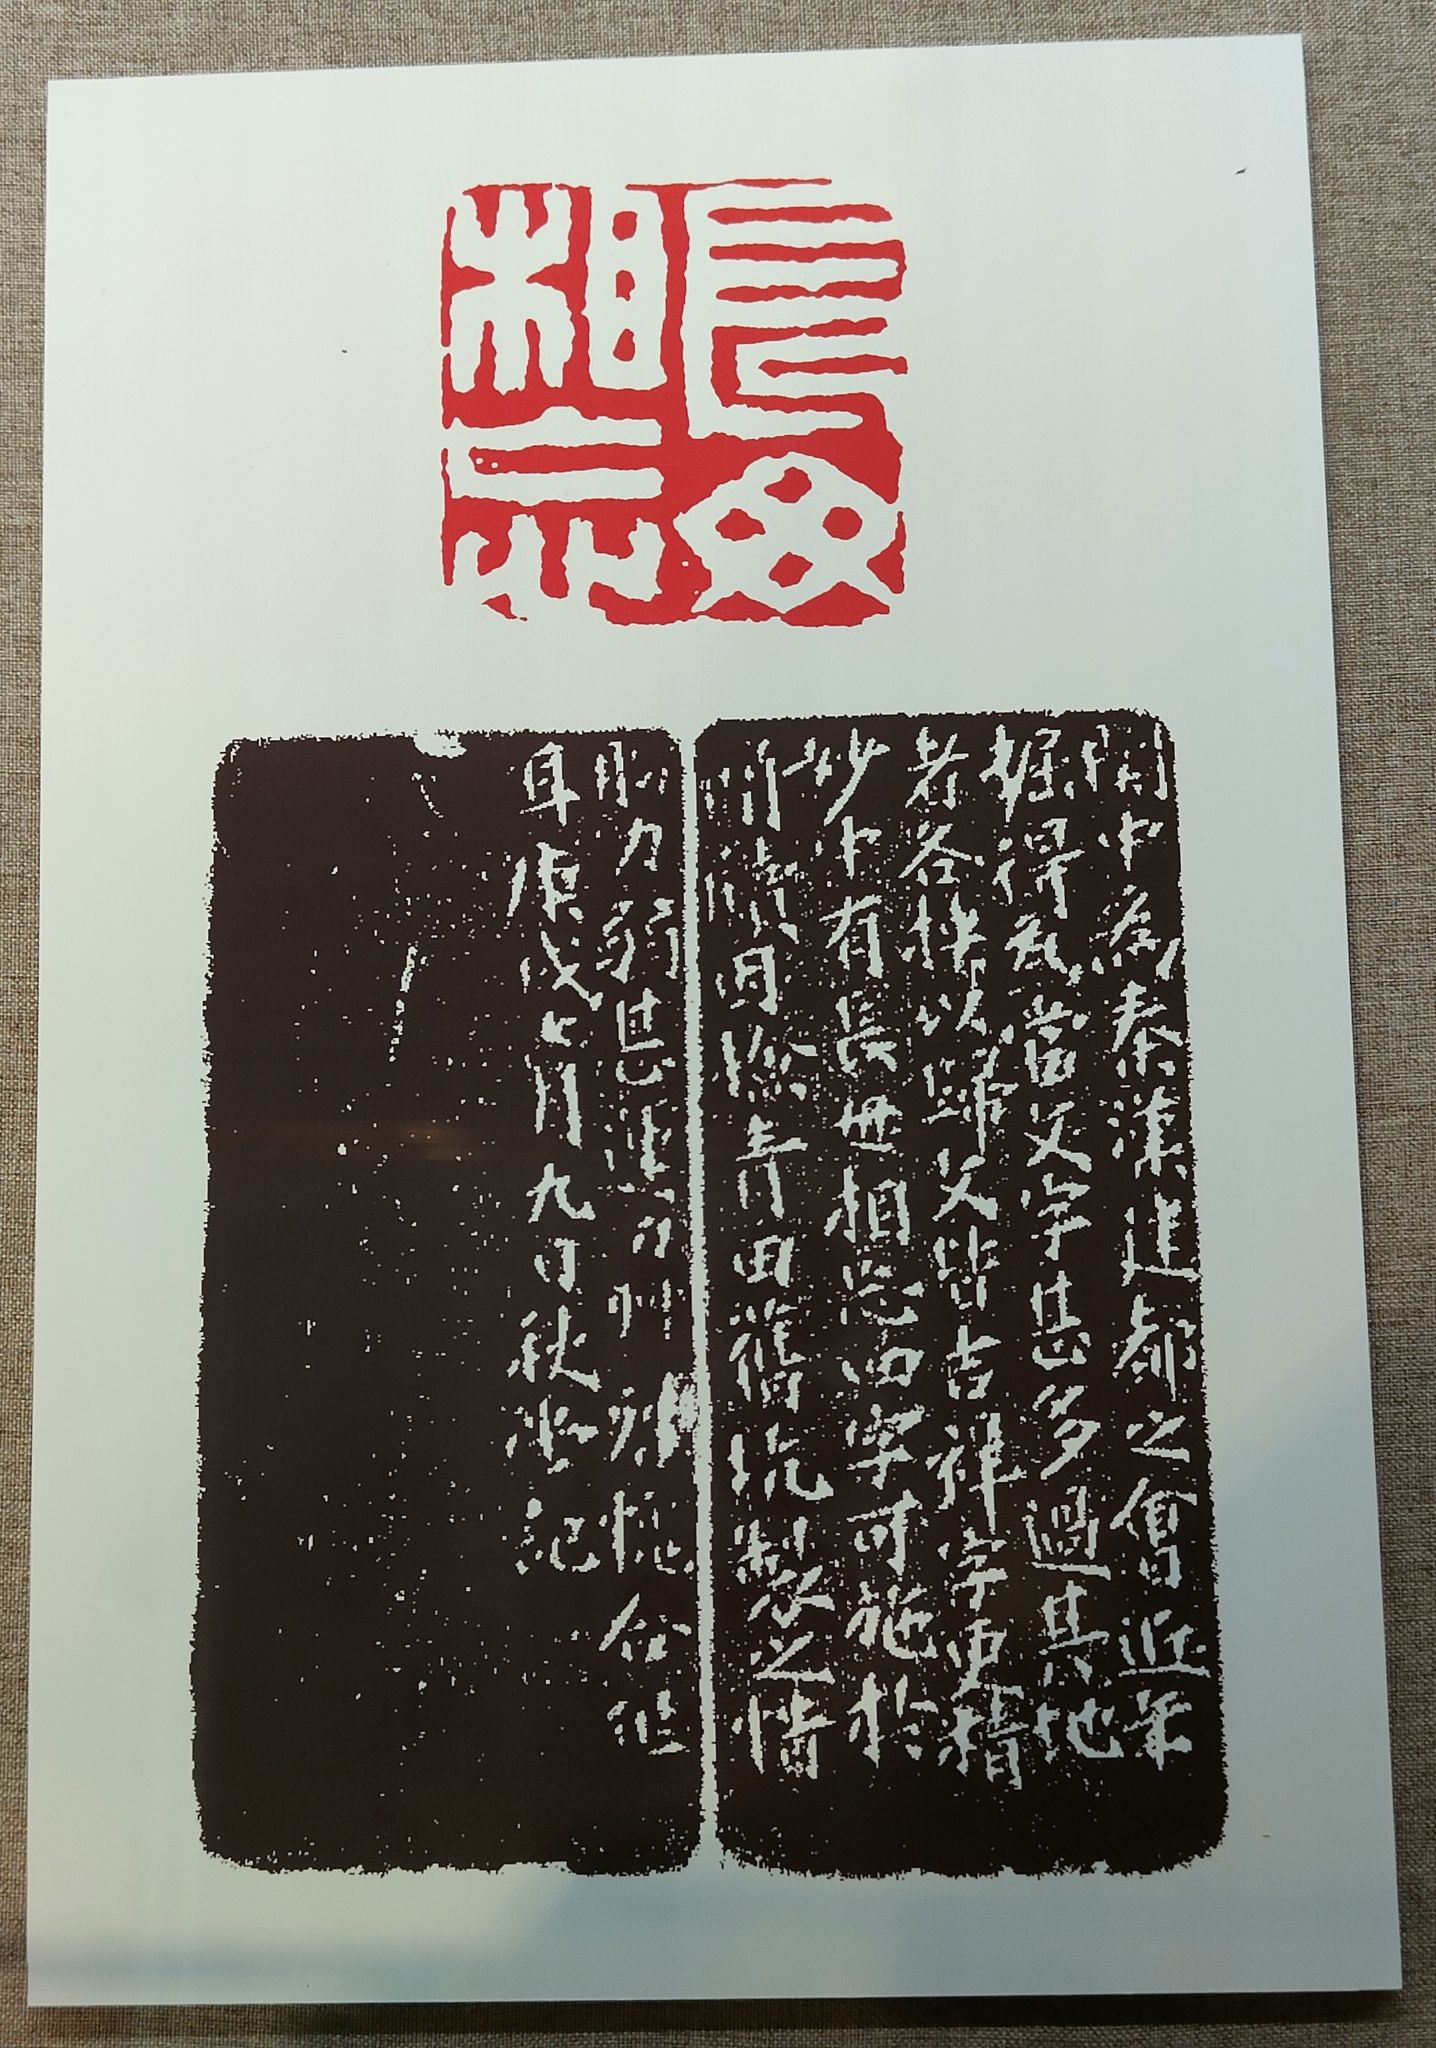 長毋相忘
關中為秦漢建都之會近年
掘得瓦當文字甚多過其地
者各椎以歸文皆吉祥字更精
妙中有長毋相忘四字可施於
間績同滁青田舊坑製之惜
腕力弱甚
耳庚戌七月九日秋堂記